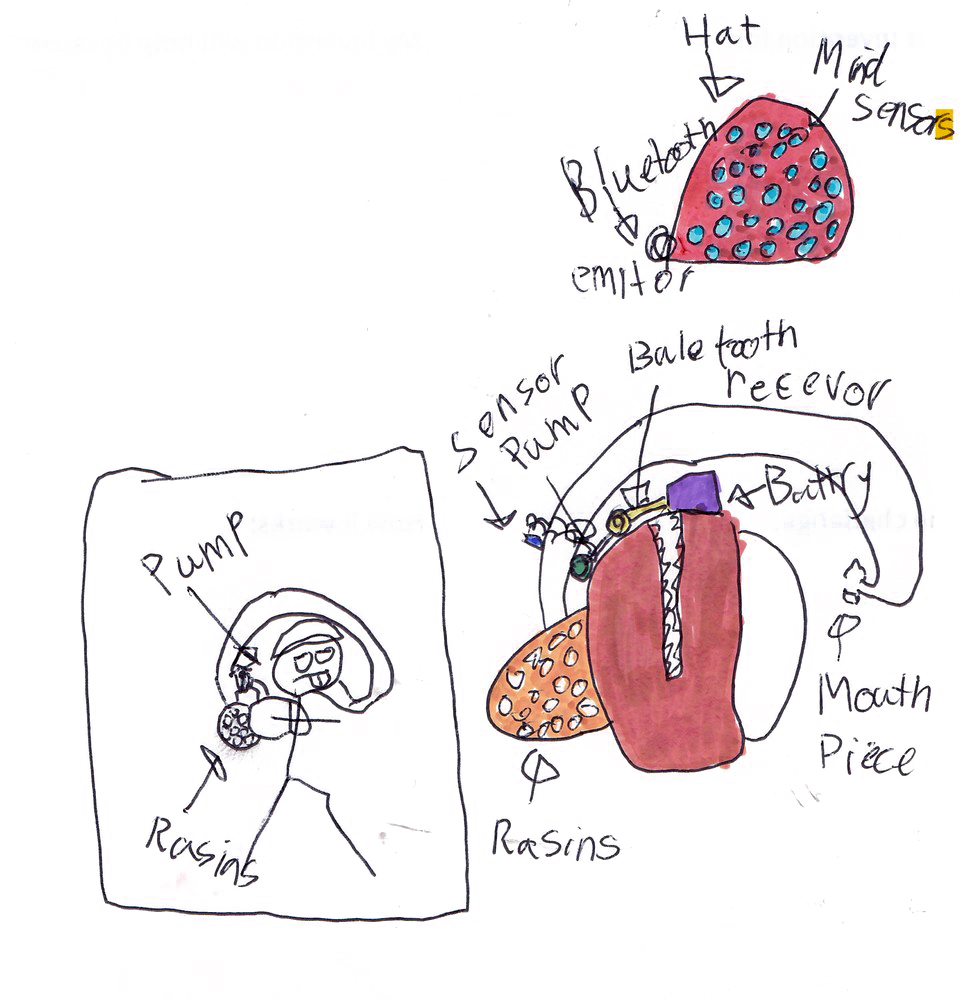 Hat
Mind
sensors
Bluetooth
emitor
Baletooth
recevor
sensor
Pump
Battry
Pump
Mouth
Piece
Rasins
Rasins